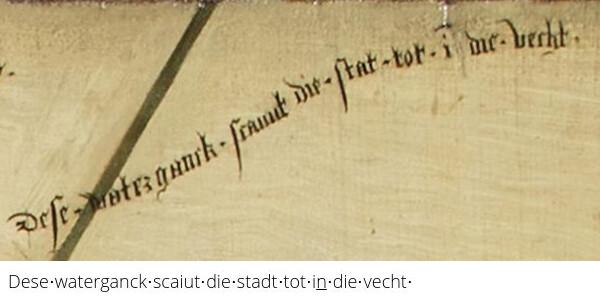 Dese·waterganck·scaiut·die·stat·tot·ī·die·vecht·
Dese·waterganck·scaiut·die·stadt·tot·in·die·vecht·